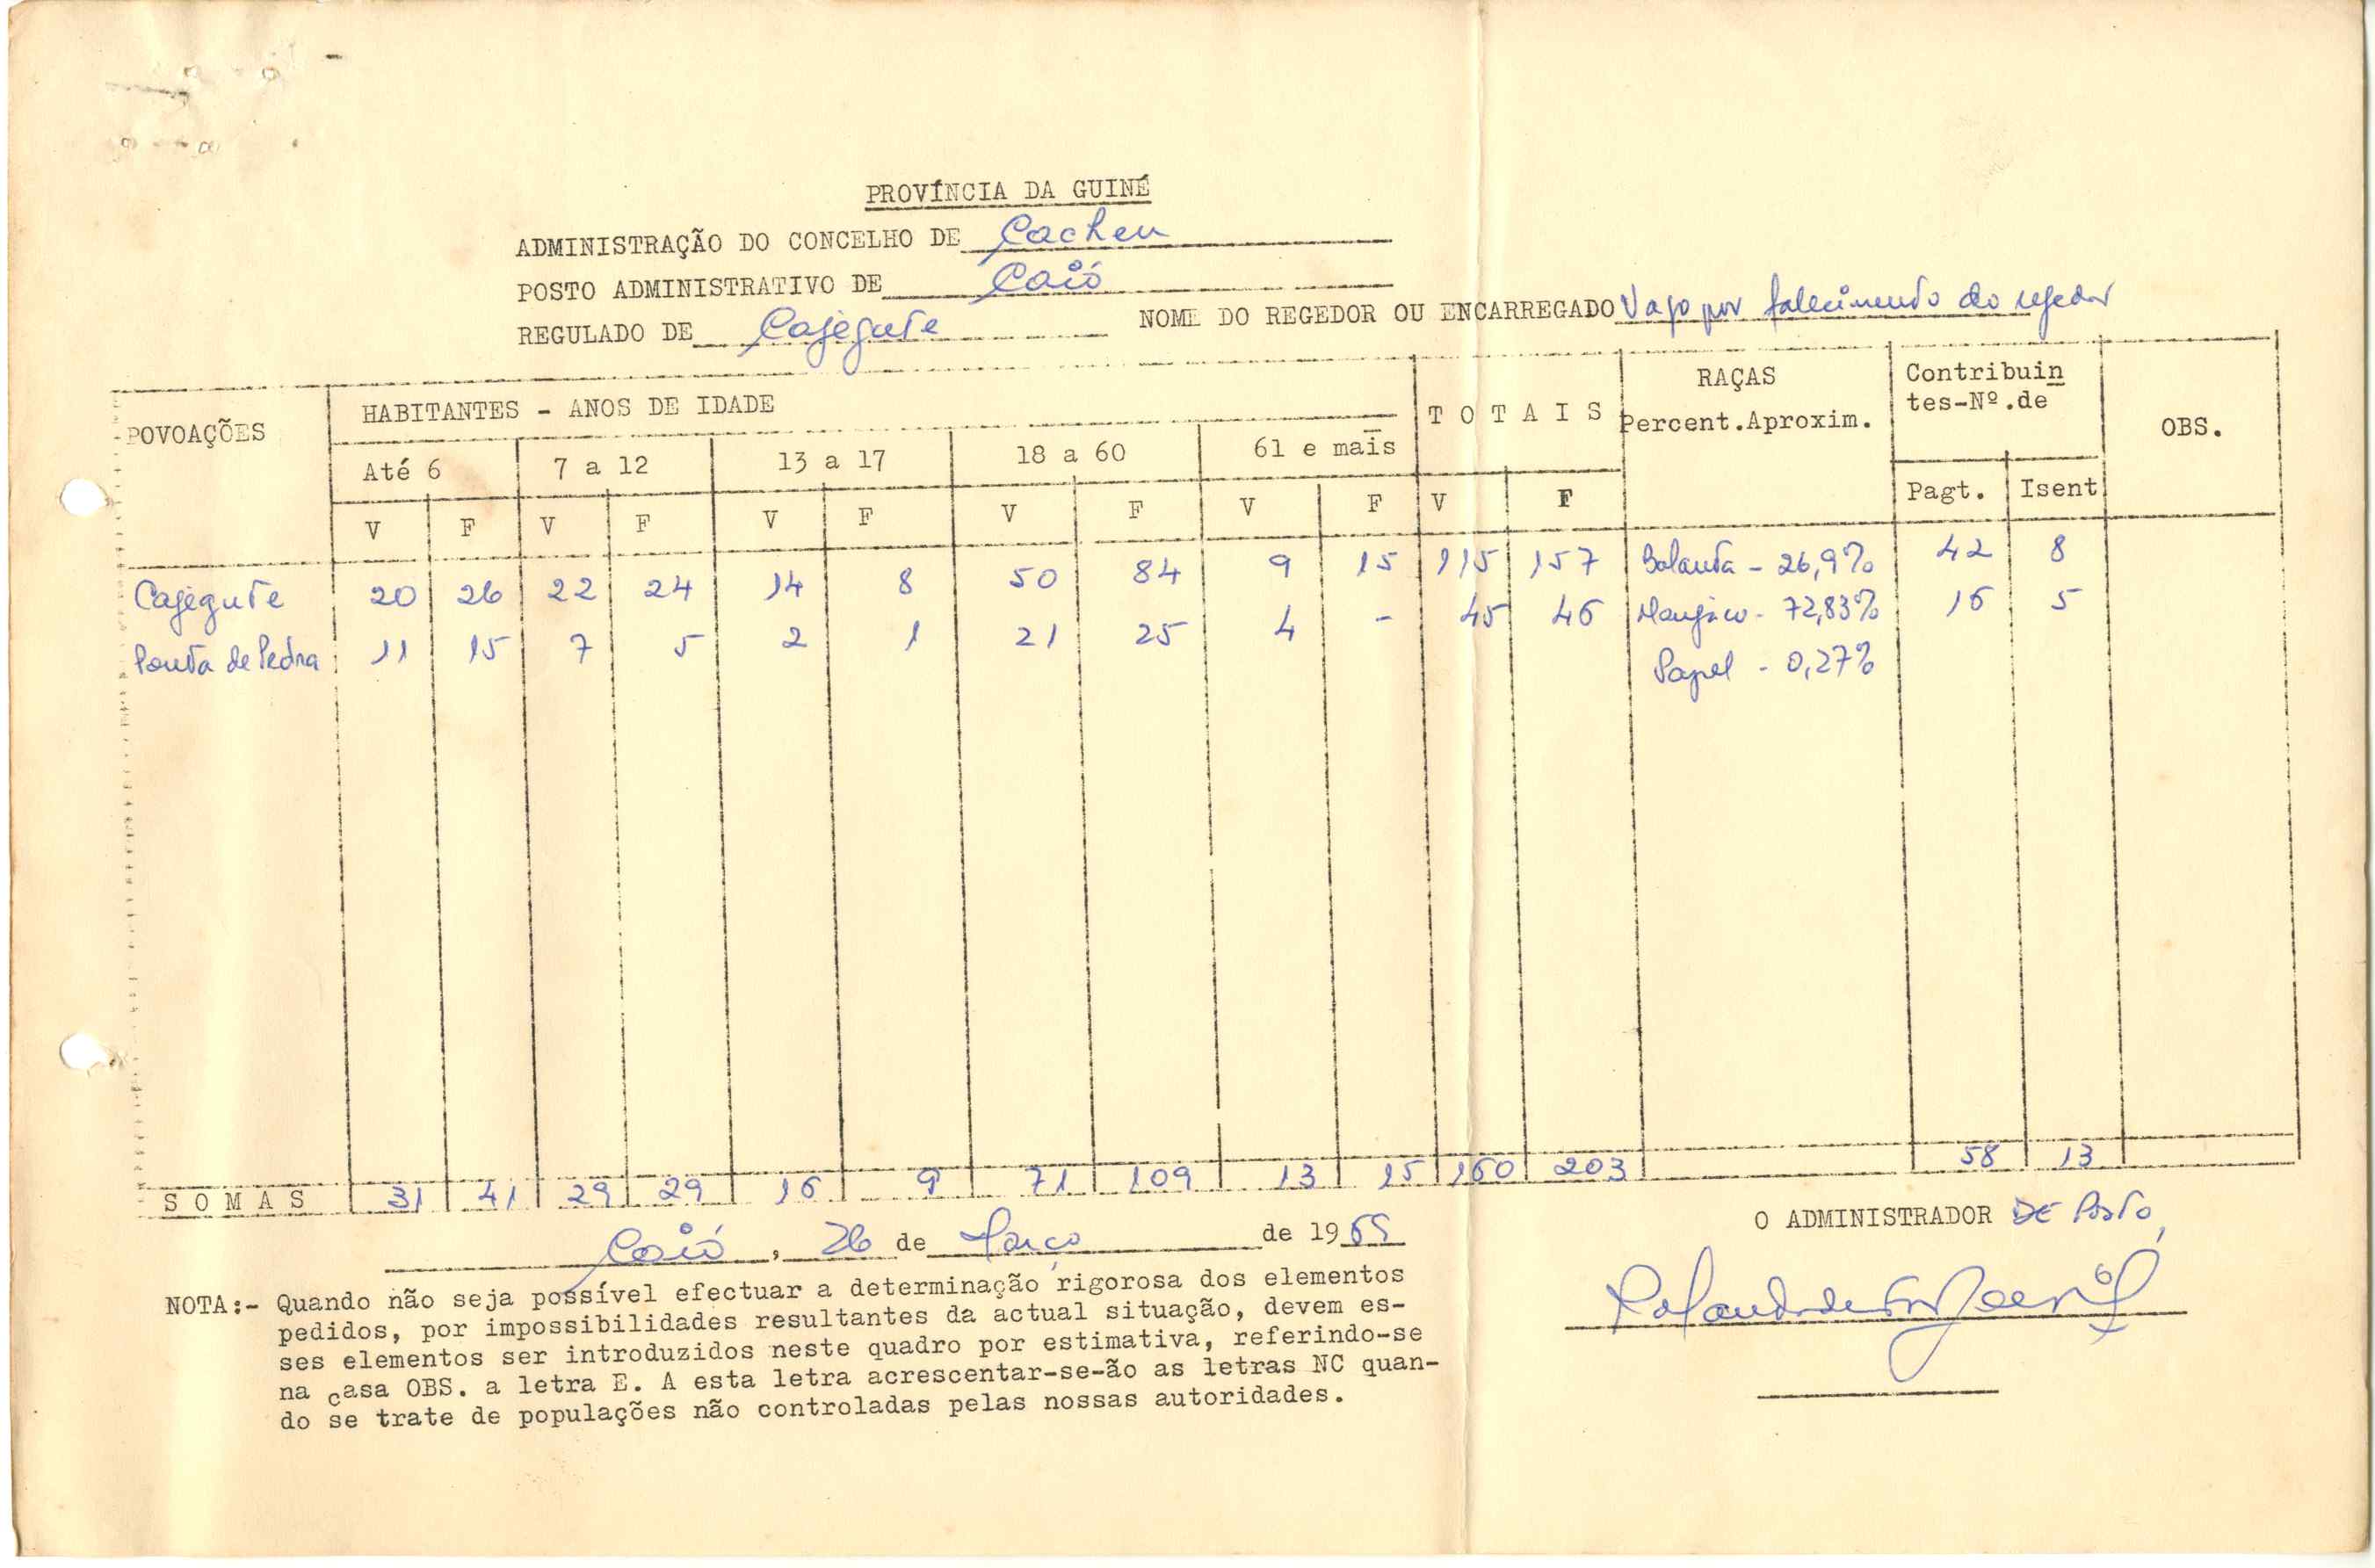 PROVÍNCIA DA GUINÉ
ADMINISTRAÇÃO DO CONCELHO DE Cacheu
POSTO ADMINISTRATIVO DE Caió
REGULADO DE Cajegute NOME DO REGEDOR OU ENCARREGADO Vago por falecimento do regedor
POVOAÇÕES HABITANTES - ANOS DE IDADE T O T A I S RAÇAS Percent.Aproxim. Contribuin
tes-Nº.de OBS.
Até 6 7 a 12 13 a 17 18 a 60 61 e mais
V F V F V F V F V F V F Pagt. Isent
Cajegute 20 26 22 24 14 8 50 84 9 15 115 157 Balanta - 26,9% 42 8
Ponta de Pedra 11 15 7 5 2 1 21 25 4 - 45 46 Manjaco - 72,83% 16 5
Papel - 0,27%
S O M A S 31 41 29 29 16 9 71 109 13 15 160 203 58 13
Caió, 26 de Março de 1969
O ADMINISTRADOR DE POSTO,
NOTA:- Quando não seja possível efectuar a determinação rigorosa dos elementos
pedidos, por impossibilidades resultantes da actual situação, devem es-
ses elementos ser introduzidos neste quadro por estimativa, referindo-se
na casa OBS. a letra E. A esta letra acrescentar-se-ão as letras NC quan-
do se trate de populações não controladas pelas nossas autoridades.